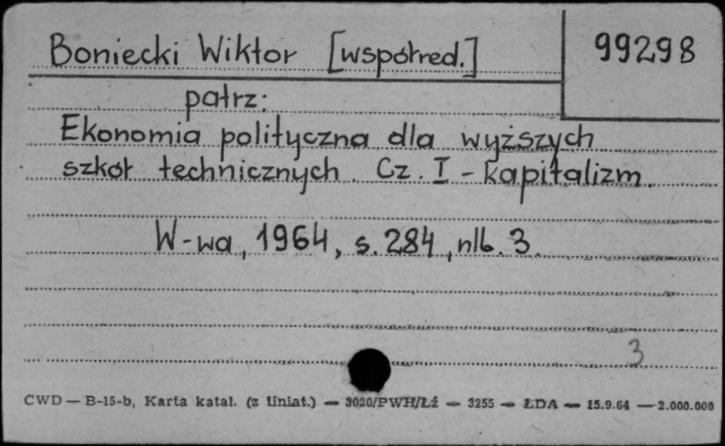 Boniecki Wiktor [współred.]
99298
patrz:
Ekonomia polityczna dla wyższych
szkół technicznych. Cz. I - kapitalizm.
W-wa, 1964, s. 284, nlb. 3.
3
CWD — B-15-b, Karta katal. (z liniat.) — 3020/PWH/Łź — 3255 — ŁDA — 15.9.64 — 2.000.000